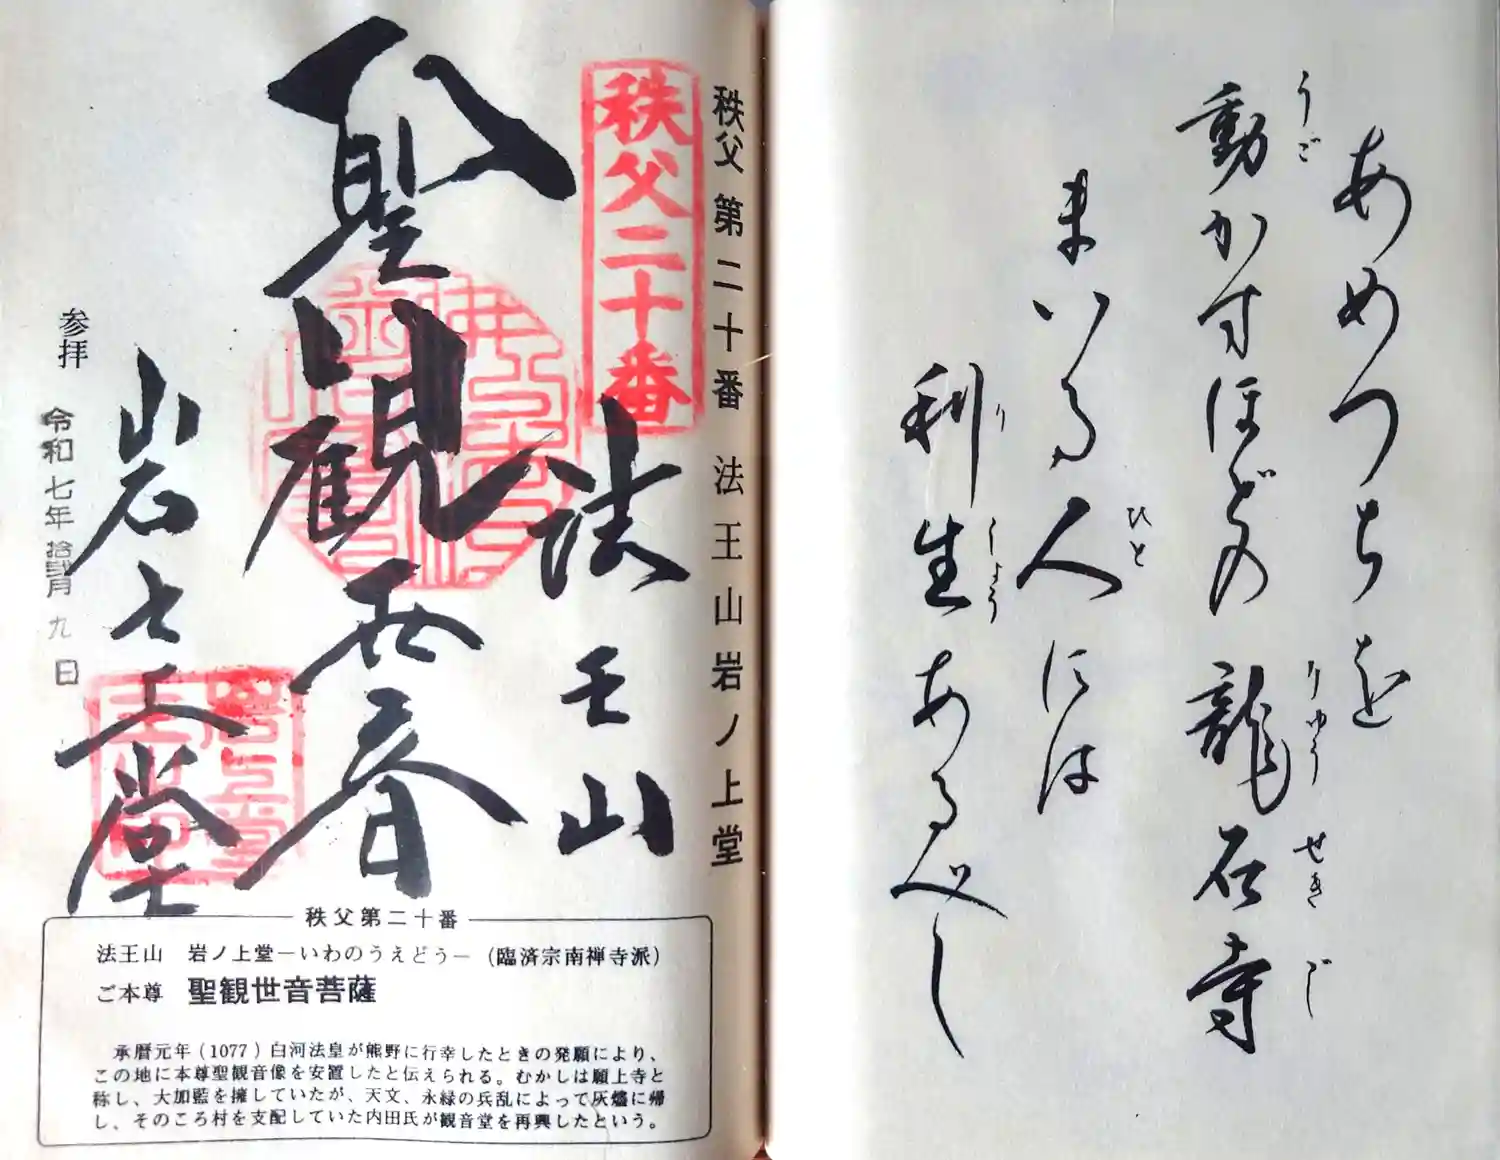 あめつちを
動かすほどの龍石寺
うご
りゅう
せき
じ
まいる人には
ひと
利生あるべし
り
しょう
秩父第二十番 法王山岩ノ上堂
秩父二十番
法王山
聖観世音
岩之上堂
参拝
令和七年拾弐月九日
秩父第二十番
法王山 岩ノ上堂―いわのうえどう―(臨済宗南禅寺派)
ご本尊 聖観世音菩薩
承暦元年(1077)白河法皇が熊野に行幸したときの発願により、
この地に本尊聖観音像を安置したと伝えられる。むかしは願上寺と
称し、大加藍を擁していたが、天文、永緑の兵乱によって灰燼に帰
し、そのころ村を支配していた内田氏が観音堂を再興したという。